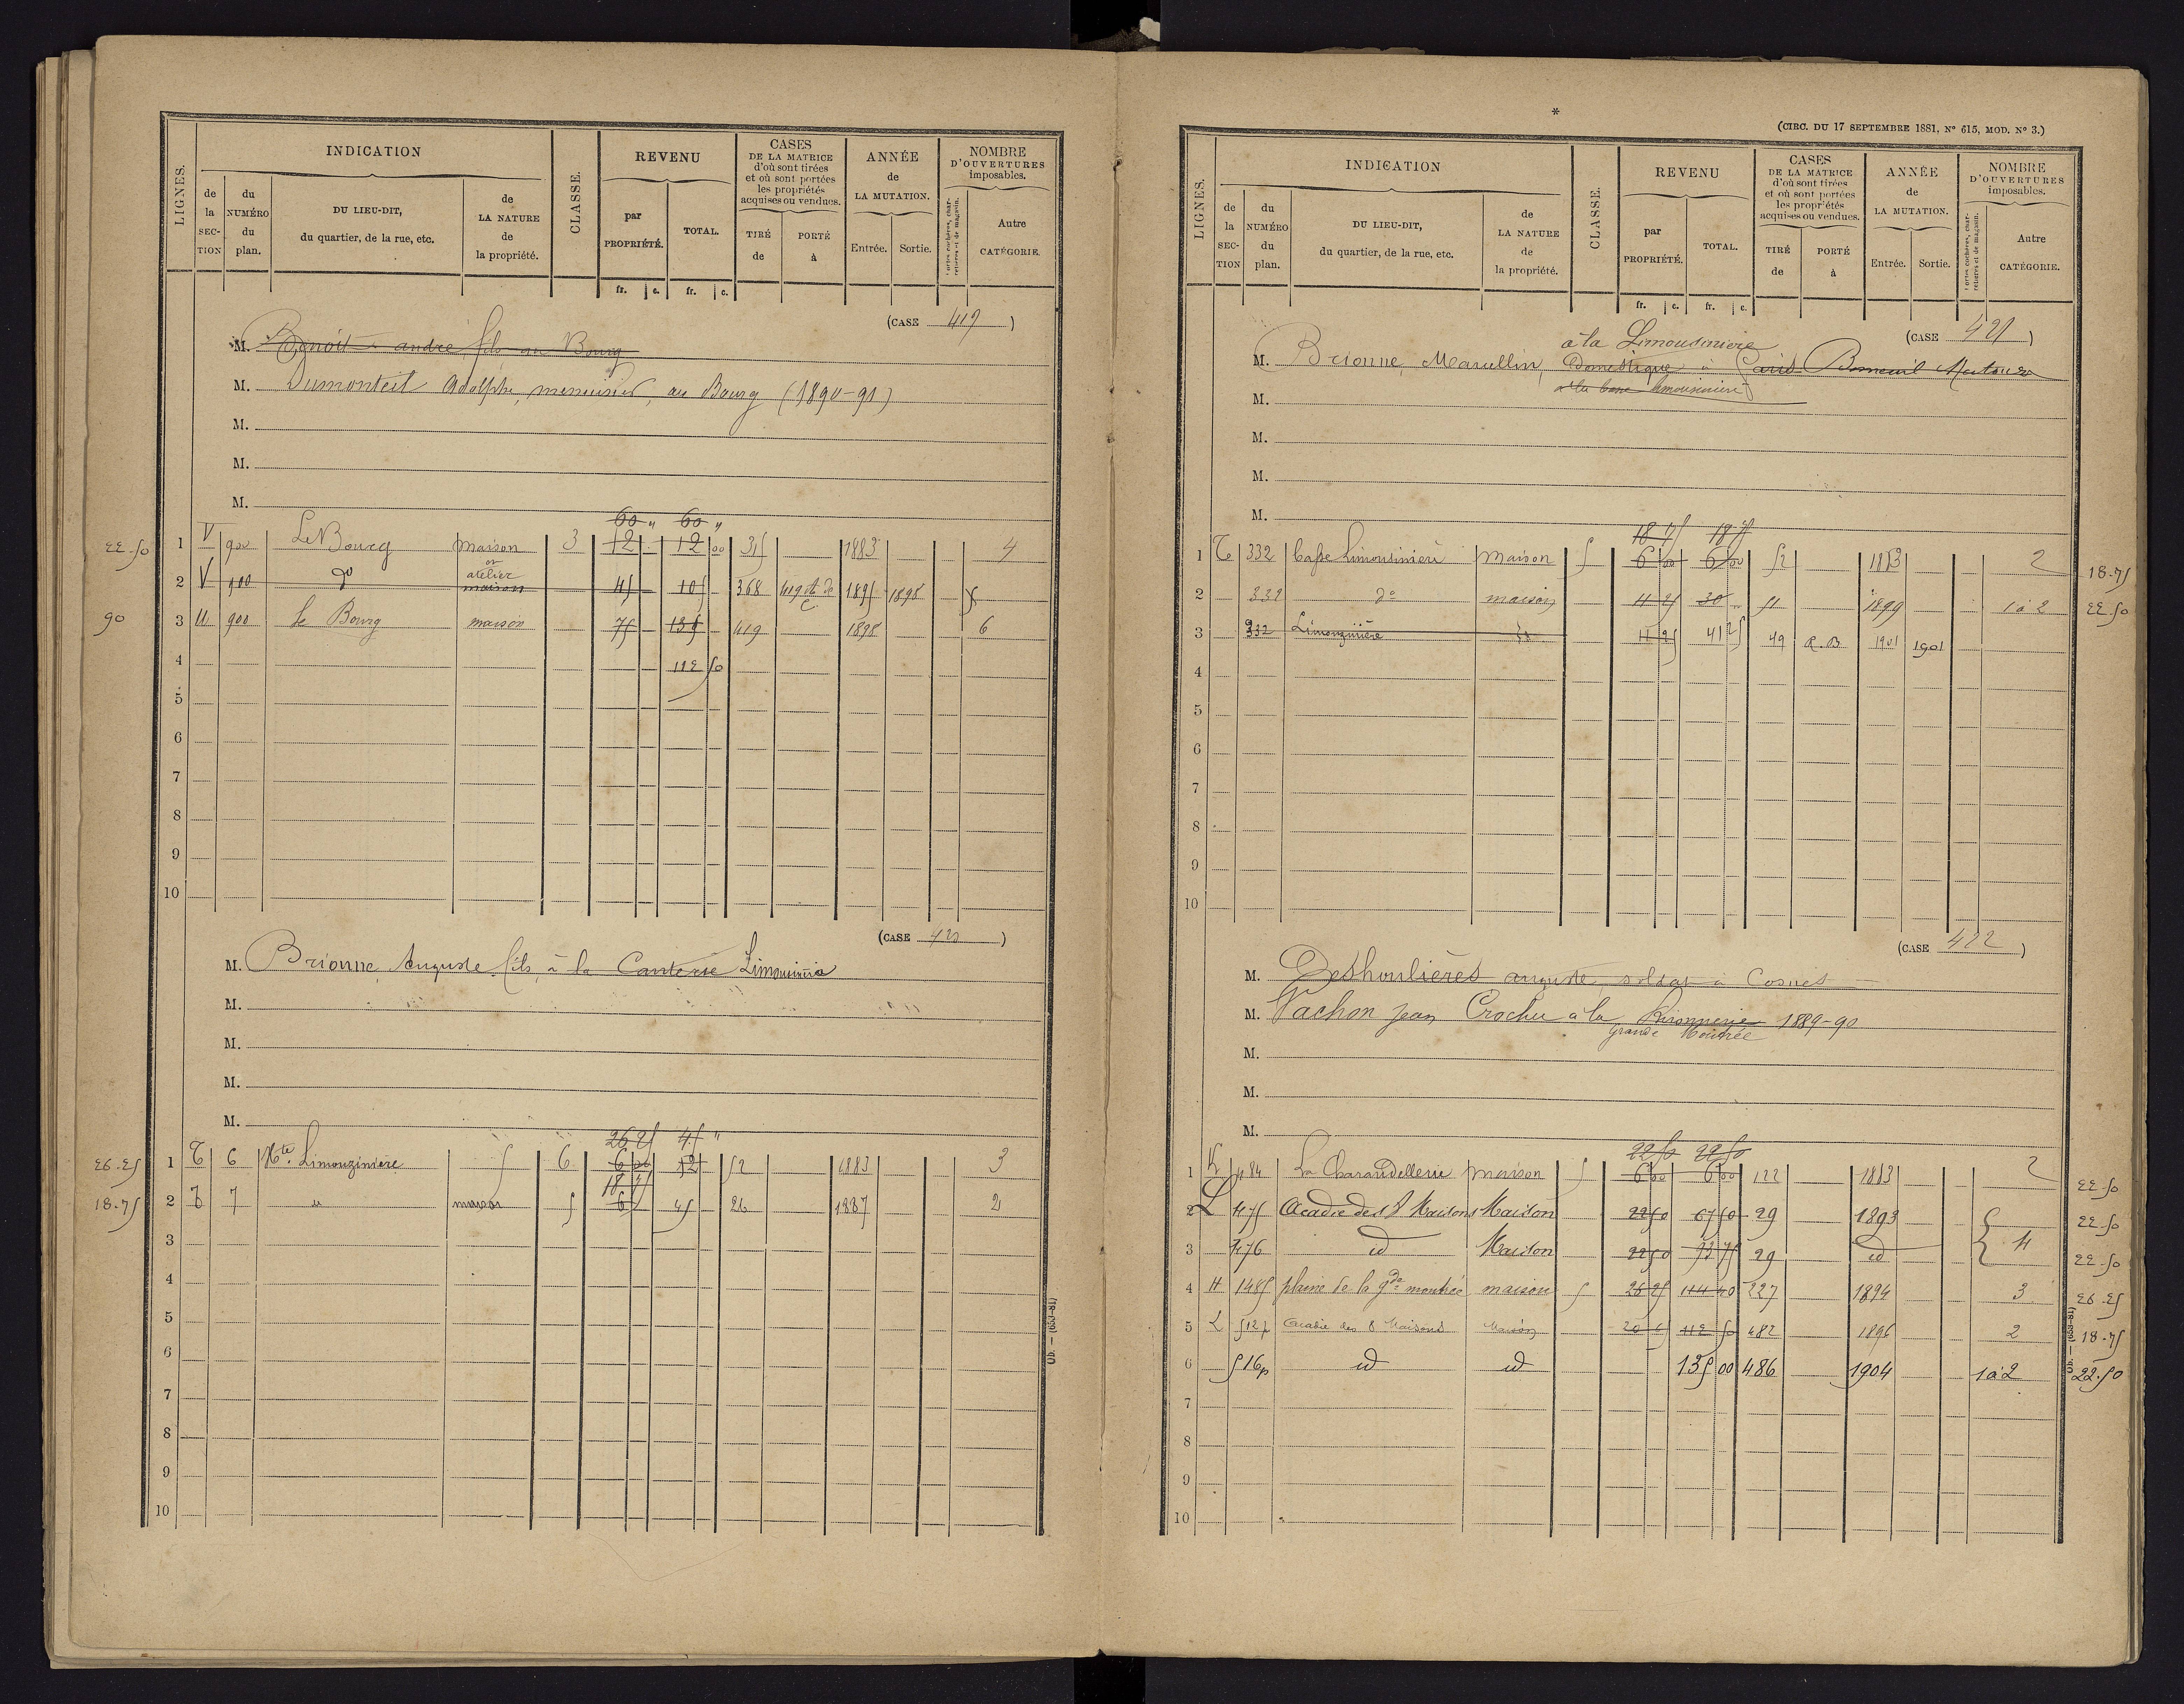 LIGNES.
INDICATION
de la SECTION
du NUMÉRO du plan.
DU LIEU-DIT, du quartier, de la rue, etc.
de LA NATURE de la propriété.
CLASSE.
REVENU
par PROPRIÉTÉ.
TOTAL.
CASES DE LA MATRICE d'où sont tirées et où sont portées les propriétés acquises ou vendues.
TIRÉ de
PORTÉ à
ANNÉE de LA MUTATION.
Entrée.
Sortie.
NOMBRE D'OUVERTURES imposables.
Portes cochères, charretières et de magasin.
Autre CATÉGORIE.
fr. c. fr. c.
(CASE 419)
M. Benoit andré fils au Bourg
M. Dumonteil Adolphe, menuisier, au Bourg (1890-91)
M.
M.
M.
60 " 60 "
22.50 1 V 900 Le Bourg maison 3 12 12 00 315 1883 4
et atelier
2 V 900 do maison 45 105 368 419 1895 1898
90 3 U 900 le Bourg maison 75 135 419 1898 6
4 112 50
5
6
7
8
9
10
(CASE 420)
M. Brionne Auguste fils, à la Limousinière
M.
M.
M.
M.
26 25 45 "
26.25 1 6 Hte Limouzinière 6 6 00 12 52 1883 3
18 75
18.75 2 7 id maison 5 6 45 26 1887 2
3
4
5
6
7
8
9
10
(CIRC. DU 17 SEPTEMBRE 1881, N° 615, MOD. N° 3.)
LIGNES.
INDICATION
de la SECTION
du NUMÉRO du plan.
DU LIEU-DIT, du quartier, de la rue, etc.
de LA NATURE de la propriété.
CLASSE.
REVENU
par PROPRIÉTÉ.
TOTAL.
CASES DE LA MATRICE d'où sont tirées et où sont portées les propriétés acquises ou vendues.
TIRÉ de
PORTÉ à
ANNÉE de LA MUTATION.
Entrée.
Sortie.
NOMBRE D'OUVERTURES imposables.
Portes cochères, charretières et de magasin.
Autre CATÉGORIE.
fr. c. fr. c.
(CASE 421)
à la Limousiniere
M. Brionne, Marcellin, Domestique à Paris Bonneuil Matours
à la basse limousinière
M.
M.
M.
M.
18 75 18 75
1 332 basse Limousiniere maison 5 6 00 6 00 52 1883 2 18.75
2 332 do maison 11 25 30 51 1899 1 à 2 22.50
3 332 Limouzinière 11 25 41 25 49 R.B 1901 1901
4
5
6
7
8
9
10
(CASE 422)
M. Deshoulières auguste, soldat à Cosnes
M. Vachon Jean Crochu à la 1889-90
Grande
M.
M.
M.
22 50 22 50
1 484 La Charaudellerie maison 5 6 00 6 00 122 1883 2 22.50
2 L 475 Acadie des 8 Maisons Maison 22 50 67 50 29 1893 22.50
3 476 id Maison 22 50 93 75 29 id 4 22.50
4 H 1485 plaine de la gde montrée maison 5 26 25 114 40 227 1894 3 26.25
5 L 512p Acadie des 8 Maisons Maison 112 50 482 1896 2 18.75
6 516p id id 135 00 486 1904 1 à 2 22.50
7
8
9
10